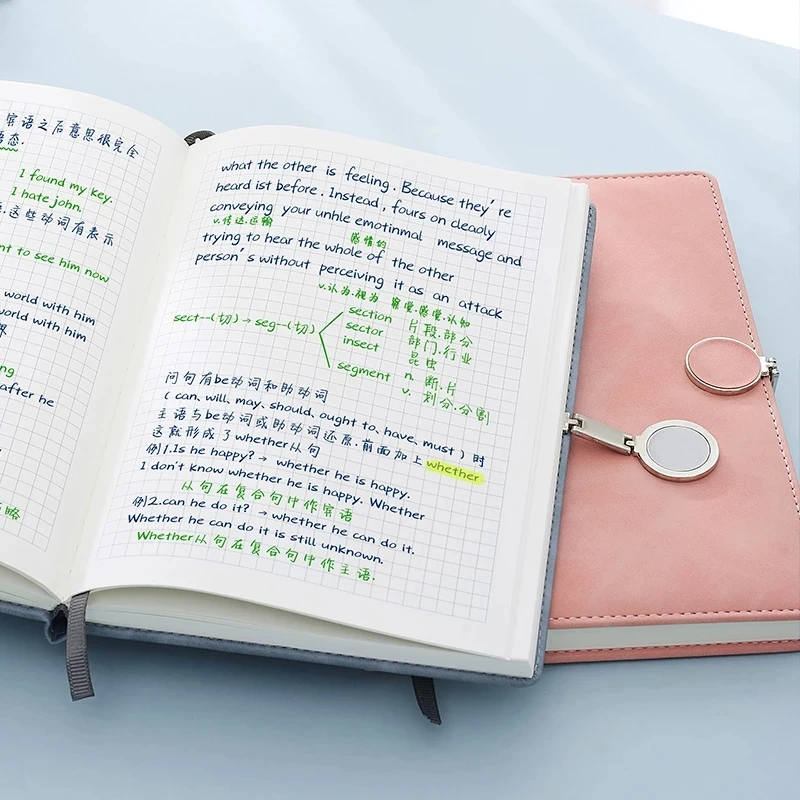 宾语之后意思很完全
语态.
I found my key.
I hate john.
这些动词有表示
nt to see him now
world with him
world with him
界
ng
after he
略
what the other is feeling. Because they're
heard ist before. Instead, fours on cleaoly
conveying your unhle emotinmal message and
v.传达.运输
感情的
trying to hear the whole of the other
person's without perceiving it as an attack
v.认为.视为 察觉.感觉.认知
sect--(切)→seg--(切)
section 片段.部分
sector 部门.行业
insect 昆虫
segment n. 断.片
v. 划分.分割
问句有be动词和助动词
( can, will, may, should, ought to, have, must ) 时
主语与be动词或助动词还原.前面加上 whether
这就形成了whether从句
例1.Is he happy?→ whether he is happy.
I don't know whether he is happy. Whether
从句在复合句中作宾语
例2.can he do it? →whether he can do it.
Whether he can do it is still unknown.
Whether从句在复合句中作主语.